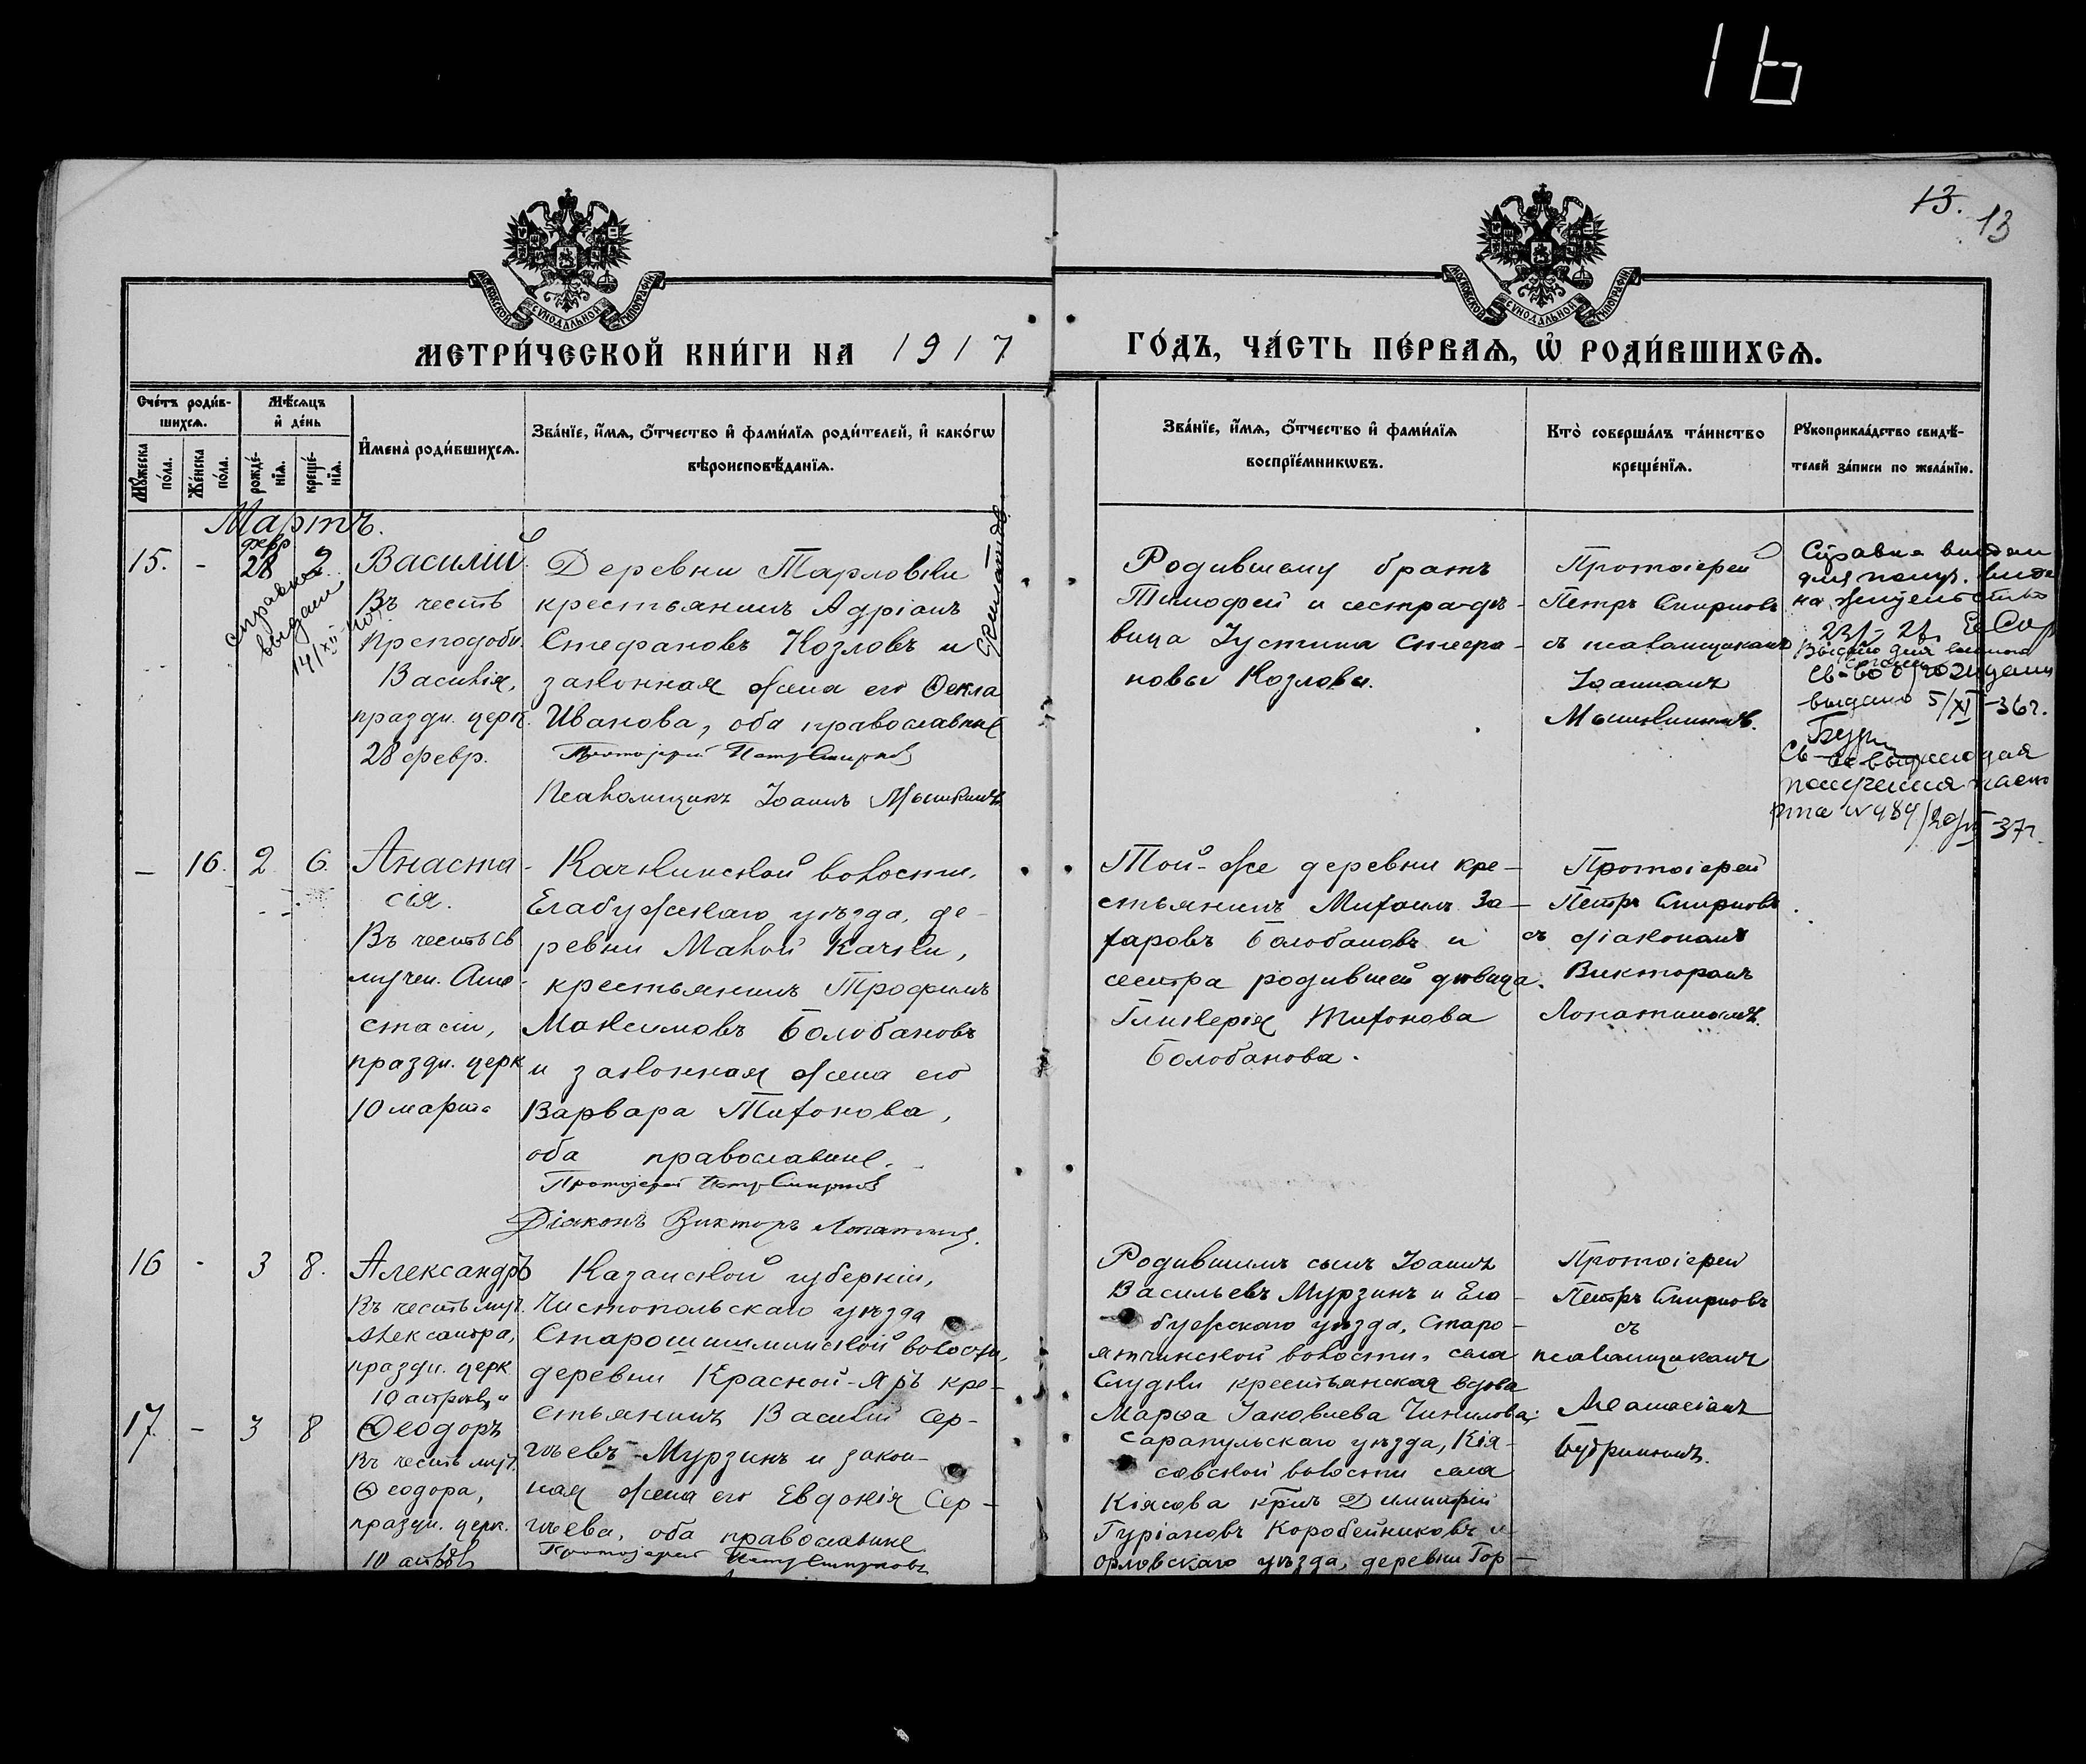 16
13. 13
МОСКОВСКОЙ СѴНОДАЛЬНОЙ ТИПОГРАФІИ
МОСКОВСКОЙ СѴНОДАЛЬНОЙ ТИПОГРАФІИ
МЕТРИ́ЧЕСКОЙ КНИ́ГИ НА 1917
ГО́ДЪ, ЧА́СТЬ ПЕ́РВАѦ, Ѡ҆ РОДИ́ВШИХСѦ.
Сче́тъ роди́в-
шихсѧ.
Мꙋ́жеска
по́ла.
Же́нска
по́ла.
Мѣ́сяцъ
и҆ де́нь
рожде́-
нїѧ.
креще́-
нїѧ.
И҆мена̀ роди́вшихсѧ.
Зва́нїе, и҆́мѧ, ѻ҆́тчество и҆ фами́лїѧ роди́телей, и҆ како́гѡ
вѣроисповѣ́данїѧ.
Зва́нїе, и҆́мѧ, ѻ҆́тчество и҆ фами́лїѧ
воспрїе́мникѡвъ.
Кто̀ соверша́лъ та́инство
креще́нїѧ.
Рꙋкоприкла́дство свидѣ́-
телей за́писи по жела́нїю.
Мартъ.
15. - февр 28 2. Василій.
Въ честь
преподобн.
Василія,
праздн. церк.
28 февр.
справка
выдана
14/XII
Деревни Тарловки
крестьянинъ Адріанъ
Стефановъ Козловъ и
законная жена его Ѳекла
Иванова, оба православные
Протоіерей Петръ Смирновъ
Псаломщикъ Іоаннъ Мышкинъ
Родившему братъ
Тимофей и сестра-дѣ-
вица Іустина Стефа-
новы Козловы.
Протоіерей
Петръ Смирновъ
съ псаломщикомъ
Іоанномъ
Мышкинымъ.
Справка выдан
для получ. вида
на жительство
выдано 5/XI-36г.
получения паспо
рта №484/20/ -37г.
- 16. 2 6. Анаста-
сія.
Въ честь св
мучен. Ана-
стасіи,
праздн. церк
10 марта
Качкинской волости,
Елабужскаго уѣзда, де-
ревни Малой Качки,
крестьянинъ Трофимъ
Максимовъ Болобановъ
и законная жена его
Варвара Тихонова,
оба православные.
Протоіерей Петръ Смирновъ
Діаконъ Викторъ Лопатинъ.
Той-же деревни кре-
стьянинъ Михаилъ За-
харовъ Болобановъ и
сестра родившей дѣвица
Гликерія Тихонова
Болобанова.
Протоіерей
Петръ Смирновъ
съ діакономъ
Викторомъ
Лопатинымъ.
16 - 3 8. Александръ
Въ честь муч.
Александра,
праздн. церк
17. - 3 8 Ѳеодоръ
Въ честь муч.
Ѳеодора,
праздн. церк.
Казанской губерніи,
Чистопольскаго уѣзда
Старошешминской волости,
деревни Красной-Яръ кре-
стьянинъ Василій Сер-
гѣевъ Мурзинъ и закон-
ная жена его Евдокія Сер-
гѣева, оба православные
Протоіерей Петръ Смирновъ
Родившимъ сынъ Іоаннъ
Васильевъ Мурзинъ и Ела-
бужскаго уѣзда, Старо-
ятчинской волости, села
Слудки крестьянская вдова
Марѳа Іаковлева Чинилова;
Сарапульскаго уѣзда, Кія-
совской волости села
Кіясова кр‑нъ Димитрій
Гуріановъ Коробейниковъ и
Орловскаго уѣзда, деревни Гор-
Протоіерей
Петръ Смирновъ
съ
псаломщикомъ